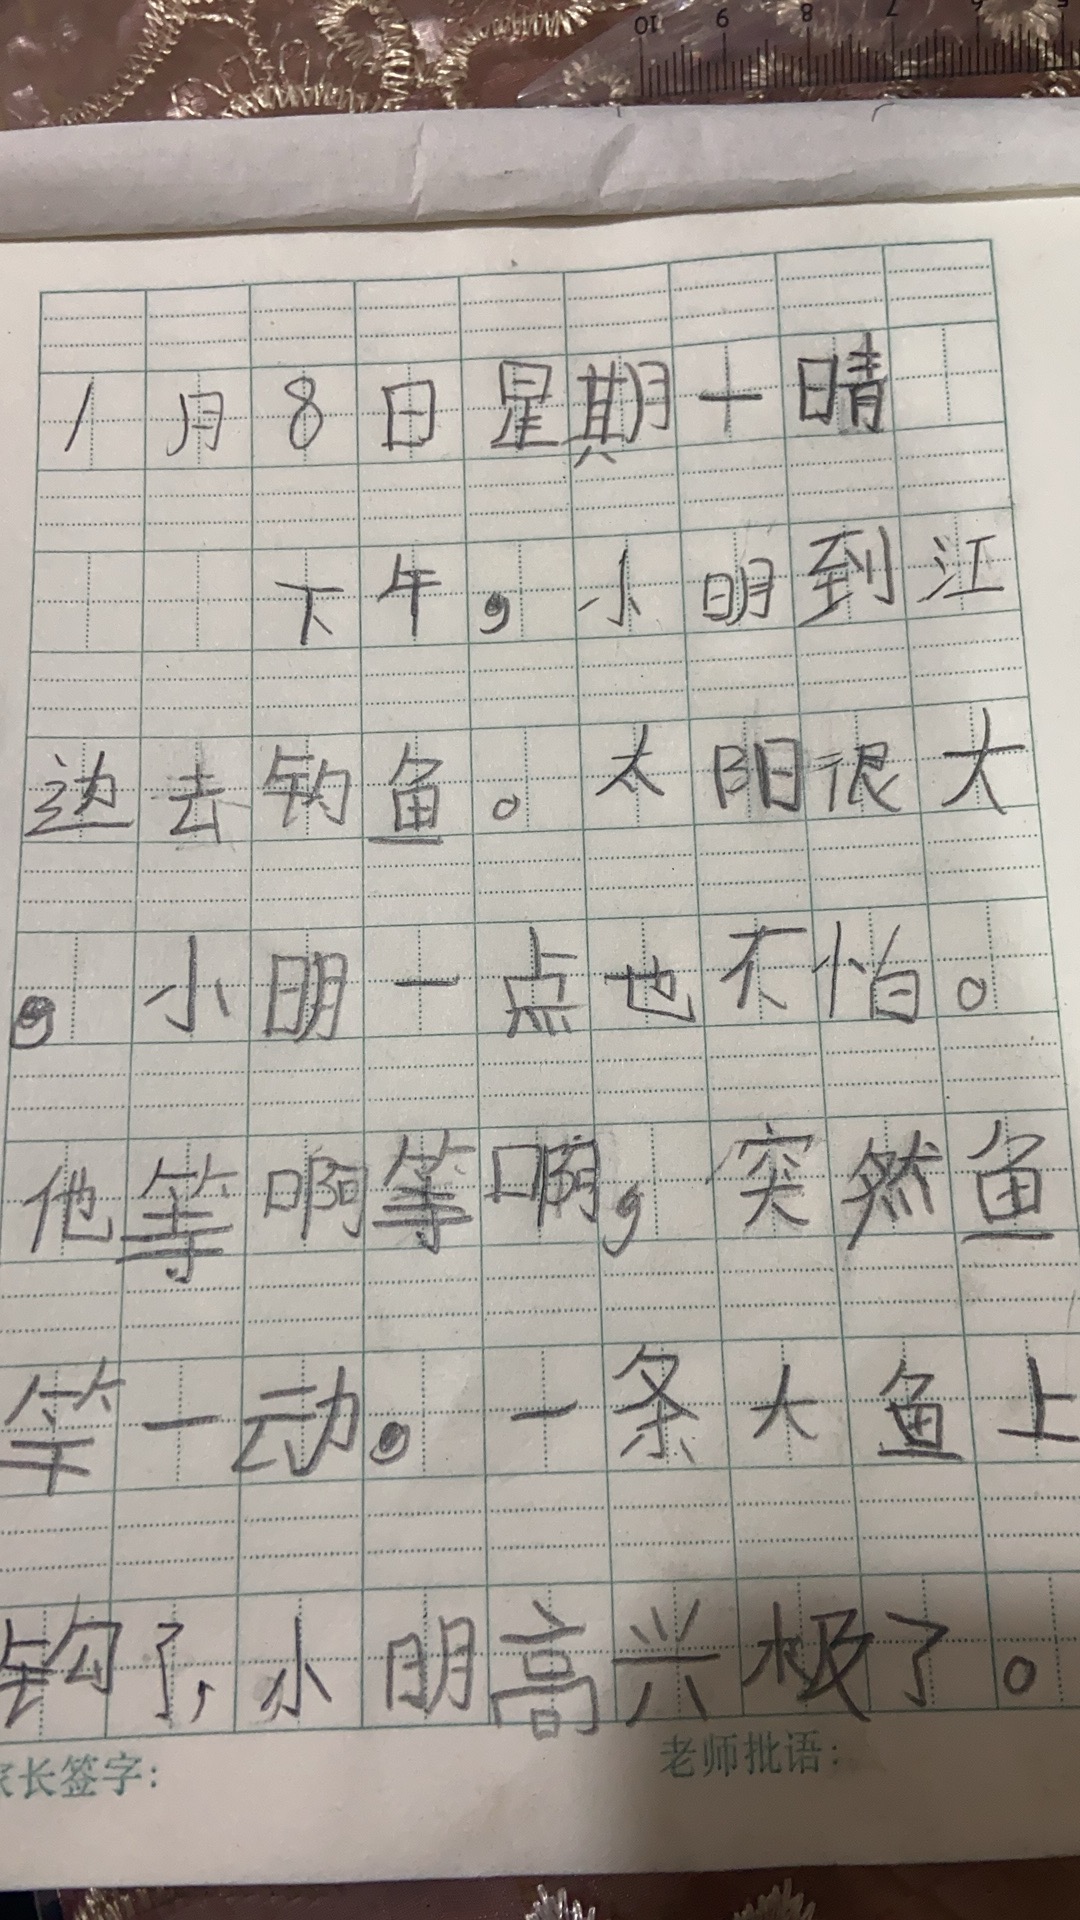 10 9 8 7 6 5
1月8日星期十晴
下午，小明到江
边去钓鱼。太阳很大
。小明一点也不怕。
他等啊等啊，突然鱼
竿一动。一条大鱼上
钩了，小明高兴极了。
家长签字： 老师批语：